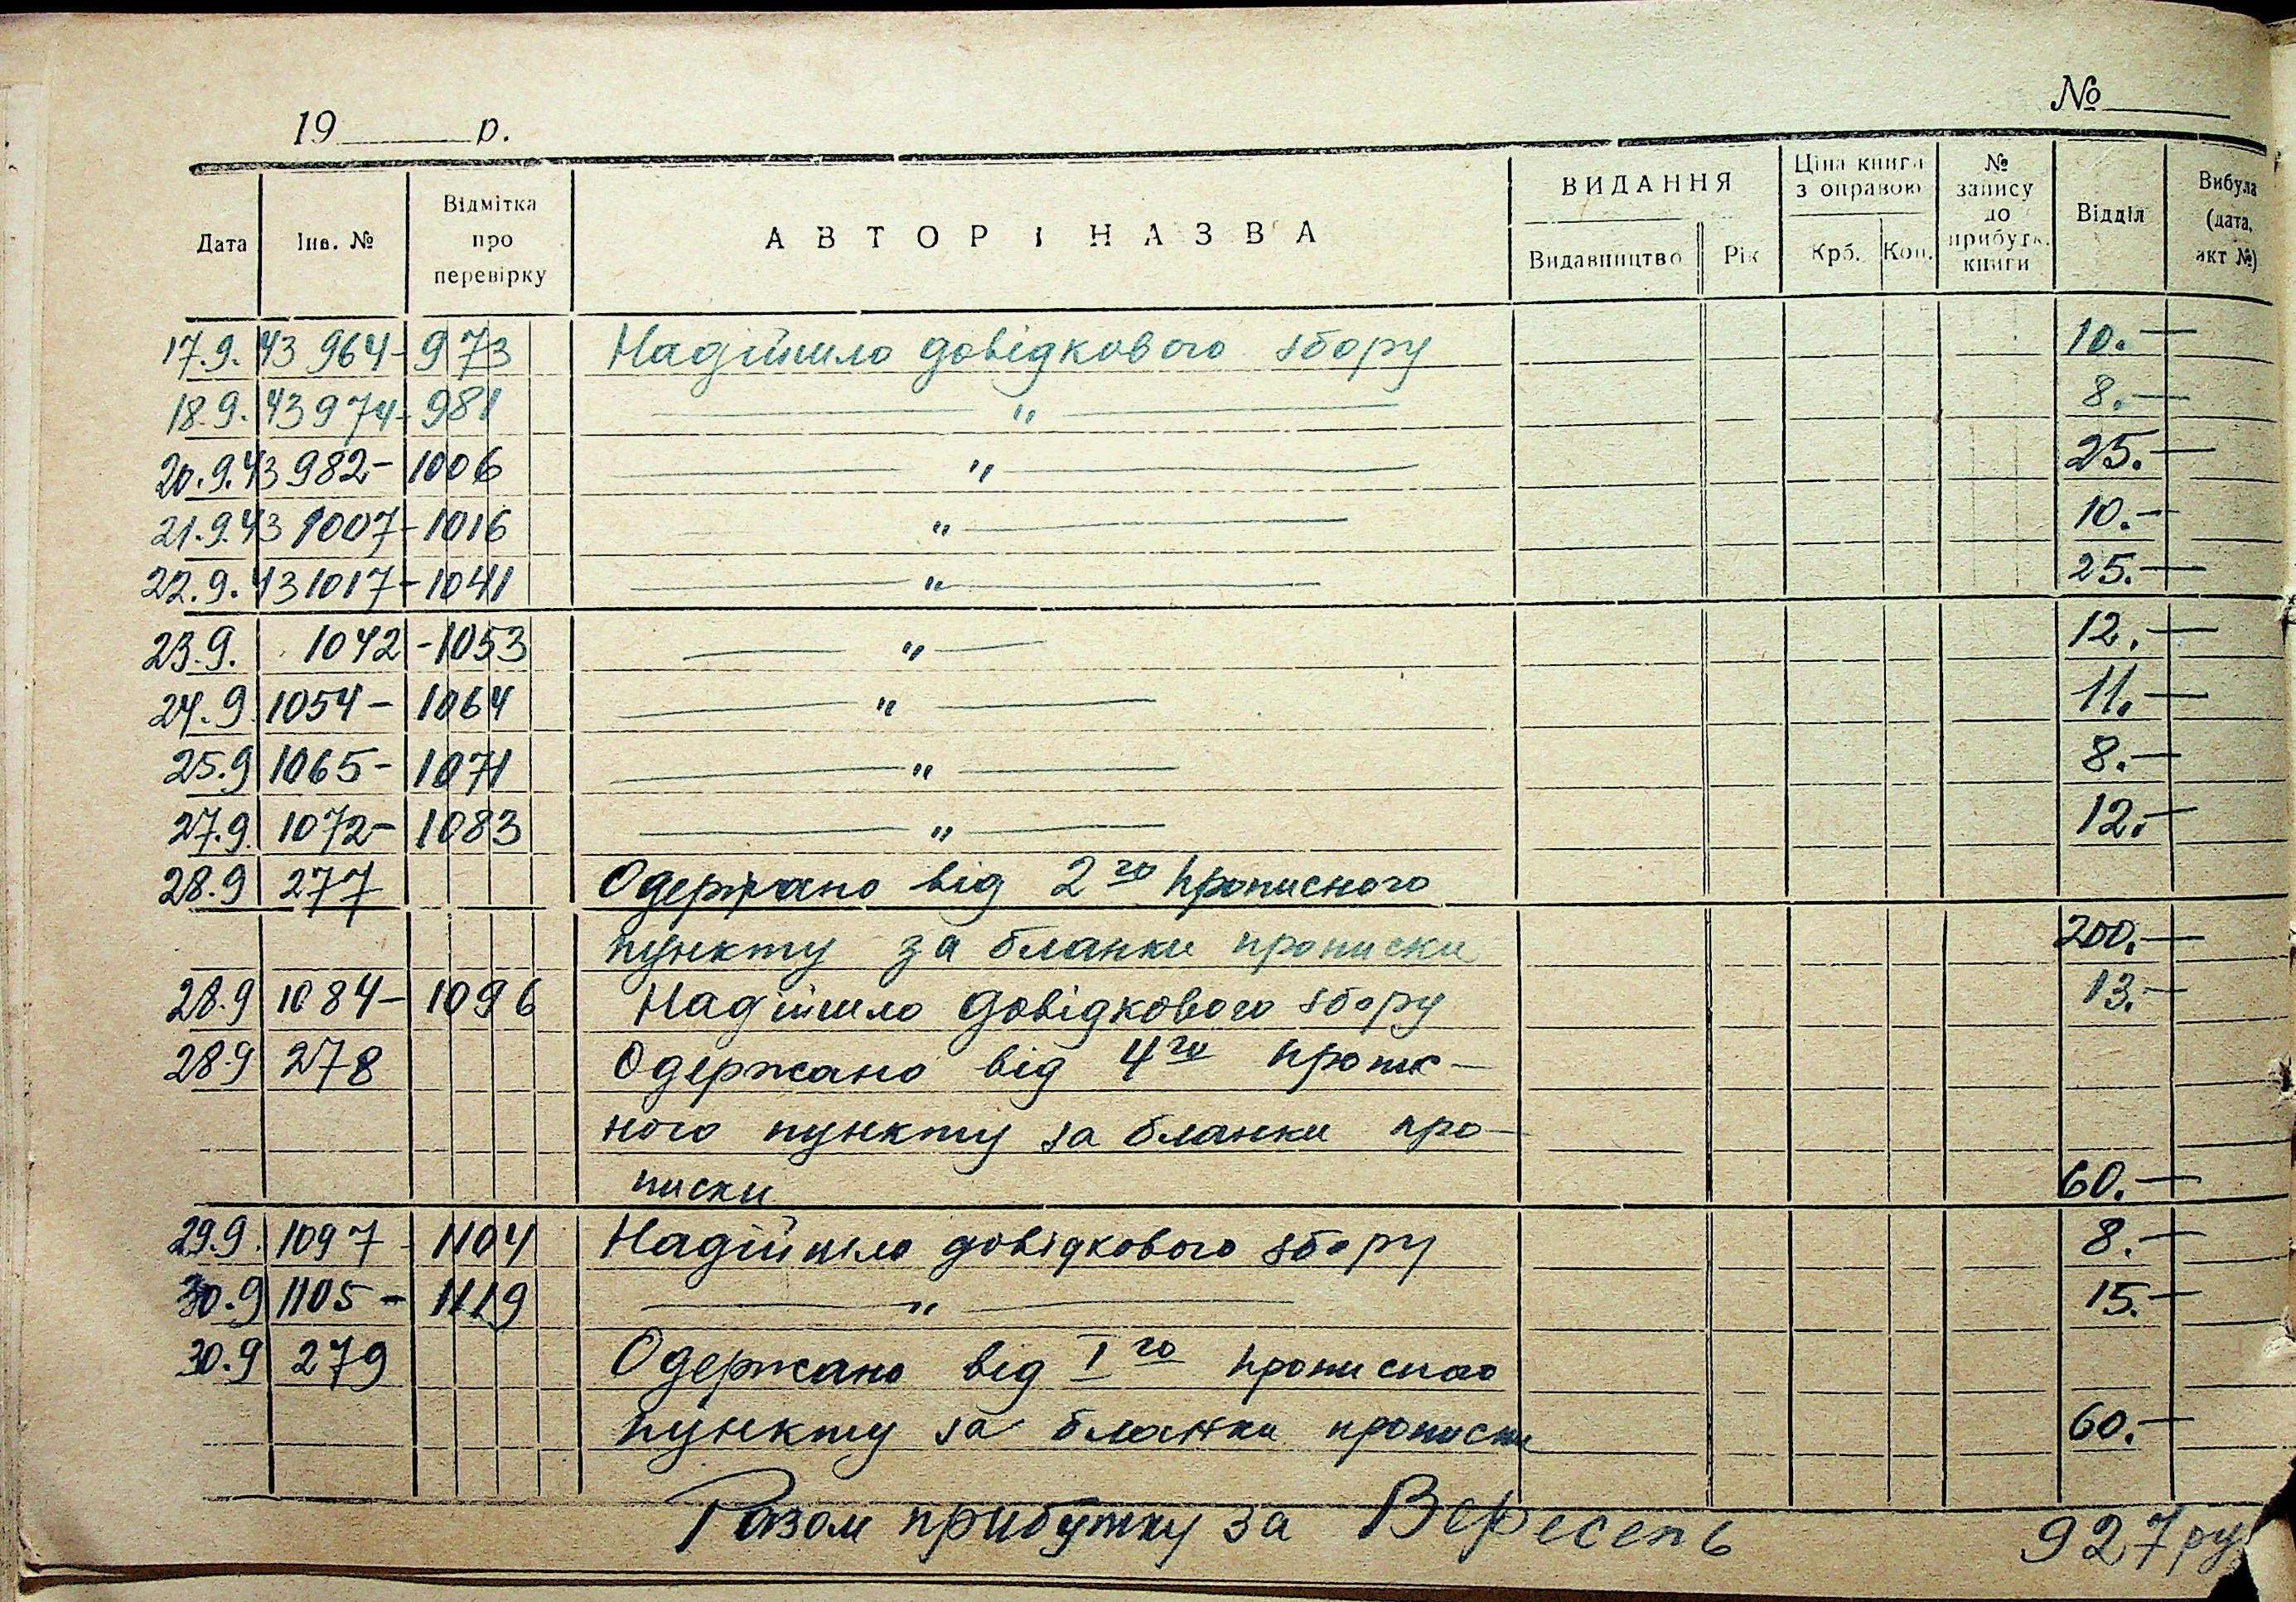 19 р. №
Дата Інв. № Відмітка про перевірку АВТОР І НАЗВА ВИДАННЯ Видавництво Рік Ціна книги з оправою Крб. Коп. № запису до прибутк. книги Відділ Вибула (дата, акт №)
17.9.43 964-973 Надійшло довідкового збору 10.—
18.9.43 974-981 — " — 8.—
20.9.43 982-1006 — " — 25.—
21.9.43 1007-1016 " — 10.—
22.9.43 1017-1041 — " — 25.—
23.9. 1042-1053 — " — 12.—
24.9 1054-1064 — " — 11.—
25.9 1065-1071 — " — 8.—
27.9. 1072-1083 — " — 12.—
28.9 277 Одержано від 2го прописного
пункту за бланки прописки 200.—
28.9 1084-1096 Надійшло довідкового збору 13.—
28.9 278 Одержано від 4го пропис-
ного пункту за бланки про-
писки 60.—
29.9. 1097 1104 Надійшло довідкового збору 8.—
30.9 1105-1119 — " — 15.—
30.9 279 Одержано від I го прописного
пункту за бланки прописки 60.—
Разом прибутку за Вересень 927 ру